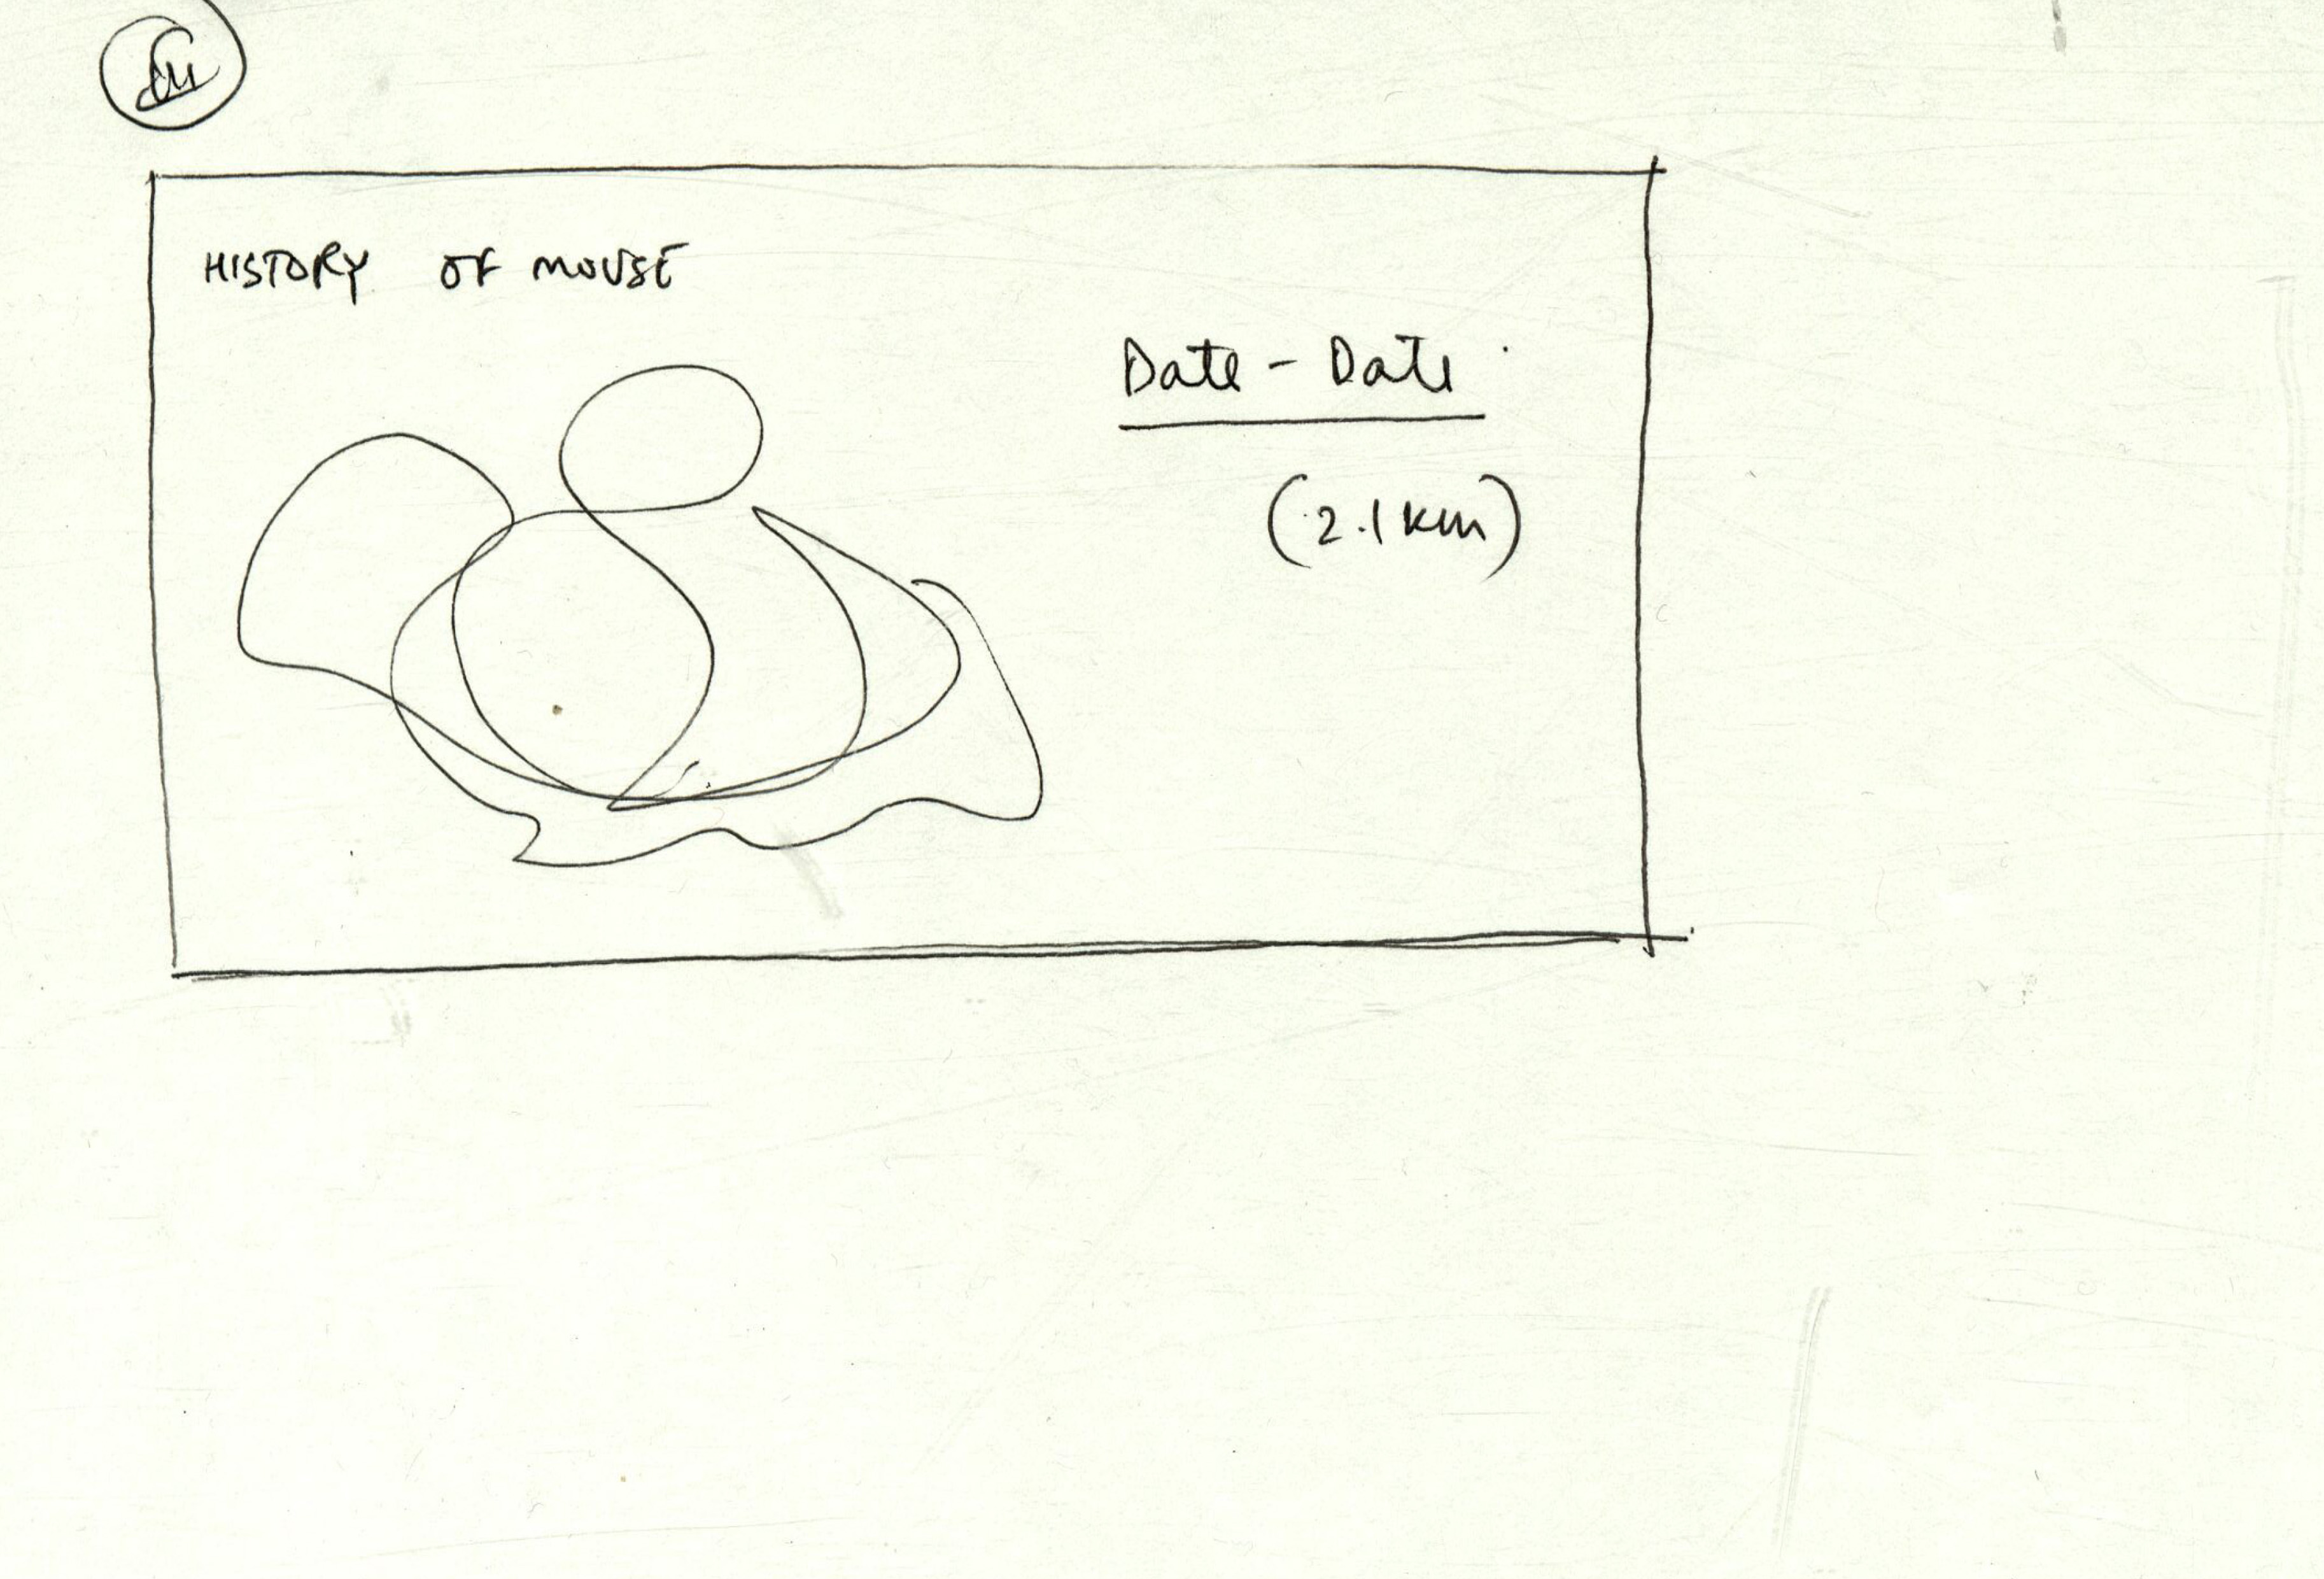 HISTORY OF MOUSE
Date - Date
(2.1 km)